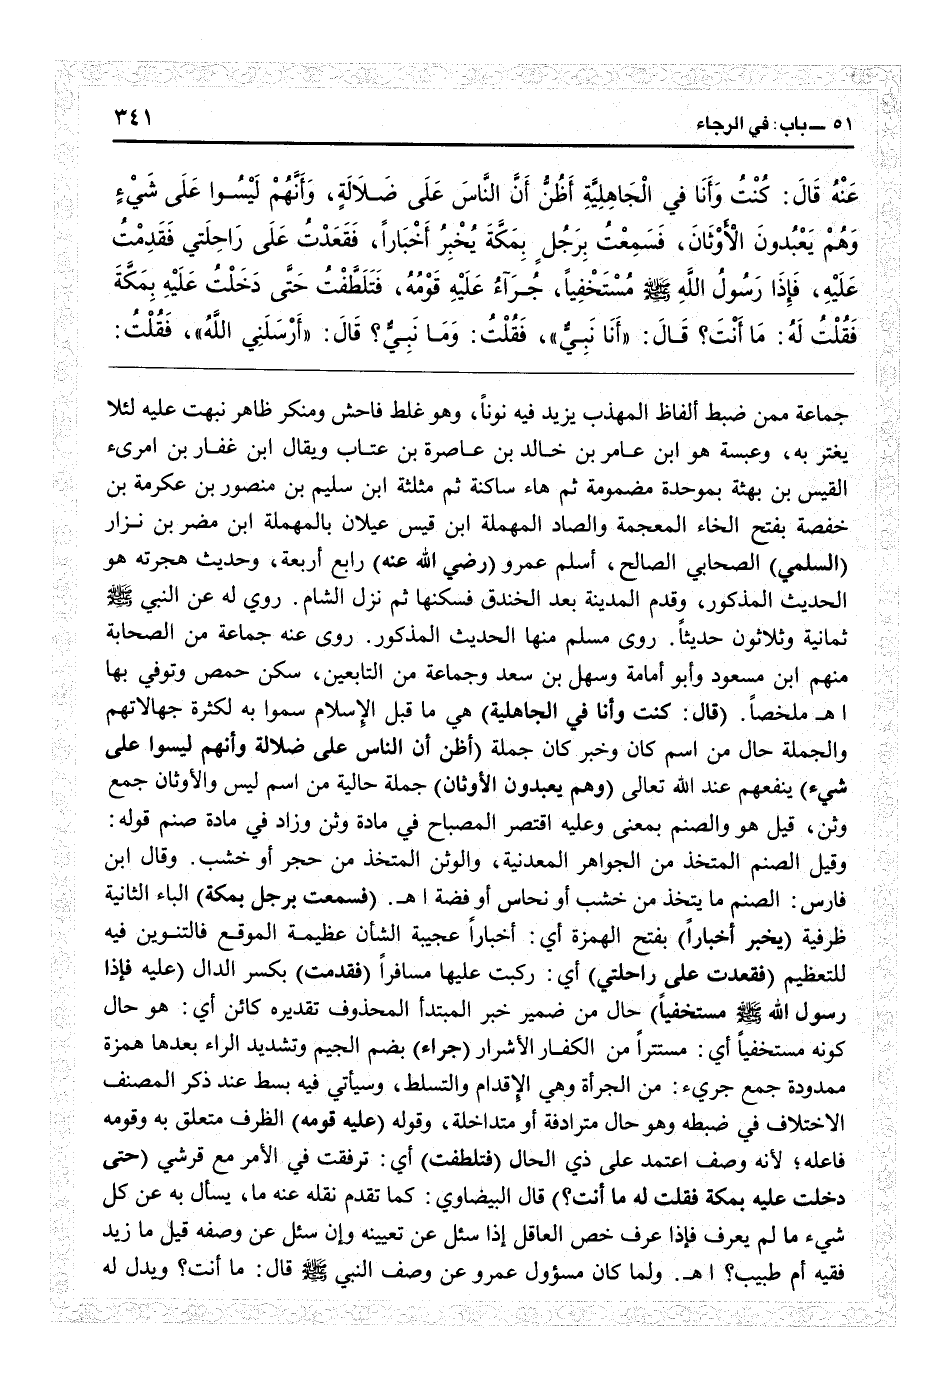 ٥١ - باب: في الرجاء
٣٤١
عَنْهُ قَالَ: كُنْتُ وَأَنَا في الْجَاهِلِيَّةِ أَظُنُّ أَنَّ النَّاسَ عَلَى ضَـلَالَةٍ، وَأَنَّهُمْ لَيْسُـوا عَلَى شَيْءٍ
وَهُمْ يَعْبُدونَ الْأَوْثَانَ، فَسَمِعْتُ بِرَجُلٍ بِمَكَّةَ يُخْبِرُ أَخْبَاراً، فَقَعَدْتُ عَلَى رَاحِلَتي فَقَدِمْتُ
عَلَيْهِ، فَإِذَا رَسُولُ اللَّهِ ﷺ مُسْتَخْفِياً، جُـرَآءُ عَلَيْهِ قَوْمُهُ، فَتَلَطَّفْتُ حَتَّى دَخَلْتُ عَلَيْهِ بِمَكَّةَ
فَقُلْتُ لَهُ: مَا أَنْتَ؟ قَـالَ: «أَنَا نَبِـيٌّ»، فَقُلْتُ: وَمَـا نَبِـيٌّ؟ قَالَ: «أَرْسَلَنِي اللَّهُ»، فَقُلْتُ:
جماعة ممن ضبط ألفاظ المهذب يزيد فيه نوناً، وهو غلط فاحش ومنكر ظاهر نبهت عليه لئلا
يغتر به، وعبسة هو ابن عـامر بن خـالد بن عـاصرة بن عتـاب ويقال ابن غفـار بن امرىء
القيس بن بهثة بموحدة مضمومة ثم هاء ساكنة ثم مثلثة ابن سليم بن منصور بن عكرمة بن
خفصة بفتح الخاء المعجمة والصاد المهملة ابن قيس عيلان بالمهملة ابن مضر بن نـزار
(السلمي) الصحابي الصالح، أسلم عمرو (رضي الله عنه) رابع أربعة، وحديث هجرته هو
الحديث المذكور، وقدم المدينة بعد الخندق فسكنها ثم نزل الشام. روي له عن النبي ﷺ
ثمانية وثلاثون حديثاً. روى مسلم منها الحديث المذكور. روى عنه جماعة من الصحابة
منهم ابن مسعود وأبو أمامة وسهل بن سعد وجماعة من التابعين، سكن حمص وتوفي بها
ا هـ ملخصاً. (قال: كنت وأنا في الجاهلية) هي ما قبل الإِسلام سموا به لكثرة جهالاتهم
والجملة حال من اسم كان وخبر كان جملة (أظن أن الناس على ضلالة وأنهم ليسوا على
شيء) ينفعهم عند الله تعالى (وهم يعبدون الأوثان) جملة حالية من اسم ليس والأوثان جمع
وثن، قيل هو والصنم بمعنى وعليه اقتصر المصباح في مادة وثن وزاد في مادة صنم قوله:
وقيل الصنم المتخذ من الجواهر المعدنية، والوثن المتخذ من حجر أو خشب. وقال ابن
فارس: الصنم ما يتخذ من خشب أو نحاس أو فضة ا هـ. (فسمعت برجل بمكة) الباء الثانية
ظرفية (يخبر أخباراً) بفتح الهمزة أي: أخباراً عجيبة الشأن عظيمـة الموقـع فالتنـوين فيه
للتعظيم (فقعدت على راحلتي) أي: ركبت عليها مسافراً (فقدمت) بكسر الدال (عليه فإذا
رسول الله ﷺ مستخفياً) حال من ضمير خبر المبتدأ المحذوف تقديره كائن أي: هو حال
كونه مستخفياً أي: مستتراً من الكفـار الأشرار (جراء) بضم الجيم وتشديد الراء بعدها همزة
ممدودة جمع جريء: من الجرأة وهي الإِقدام والتسلط، وسيأتي فيه بسط عند ذكر المصنف
الاختلاف في ضبطه وهو حال مترادفة أو متداخلة، وقوله (عليه قومه) الظرف متعلق به وقومه
فاعله؛ لأنه وصف اعتمد على ذي الحال (فتلطفت) أي: ترفقت في الأمر مع قرشي (حتى
دخلت عليه بمكة فقلت له ما أنت؟) قال البيضاوي: كما تقدم نقله عنه ما، يسأل به عن كل
شيء ما لم يعرف فإذا عرف خص العاقل إذا سئل عن تعيينه وإن سئل عن وصفه قيل ما زيد
فقيه أم طبيب؟ ا هـ. ولما كان مسؤول عمرو عن وصف النبي ﷺ قال: ما أنت؟ ويدل له